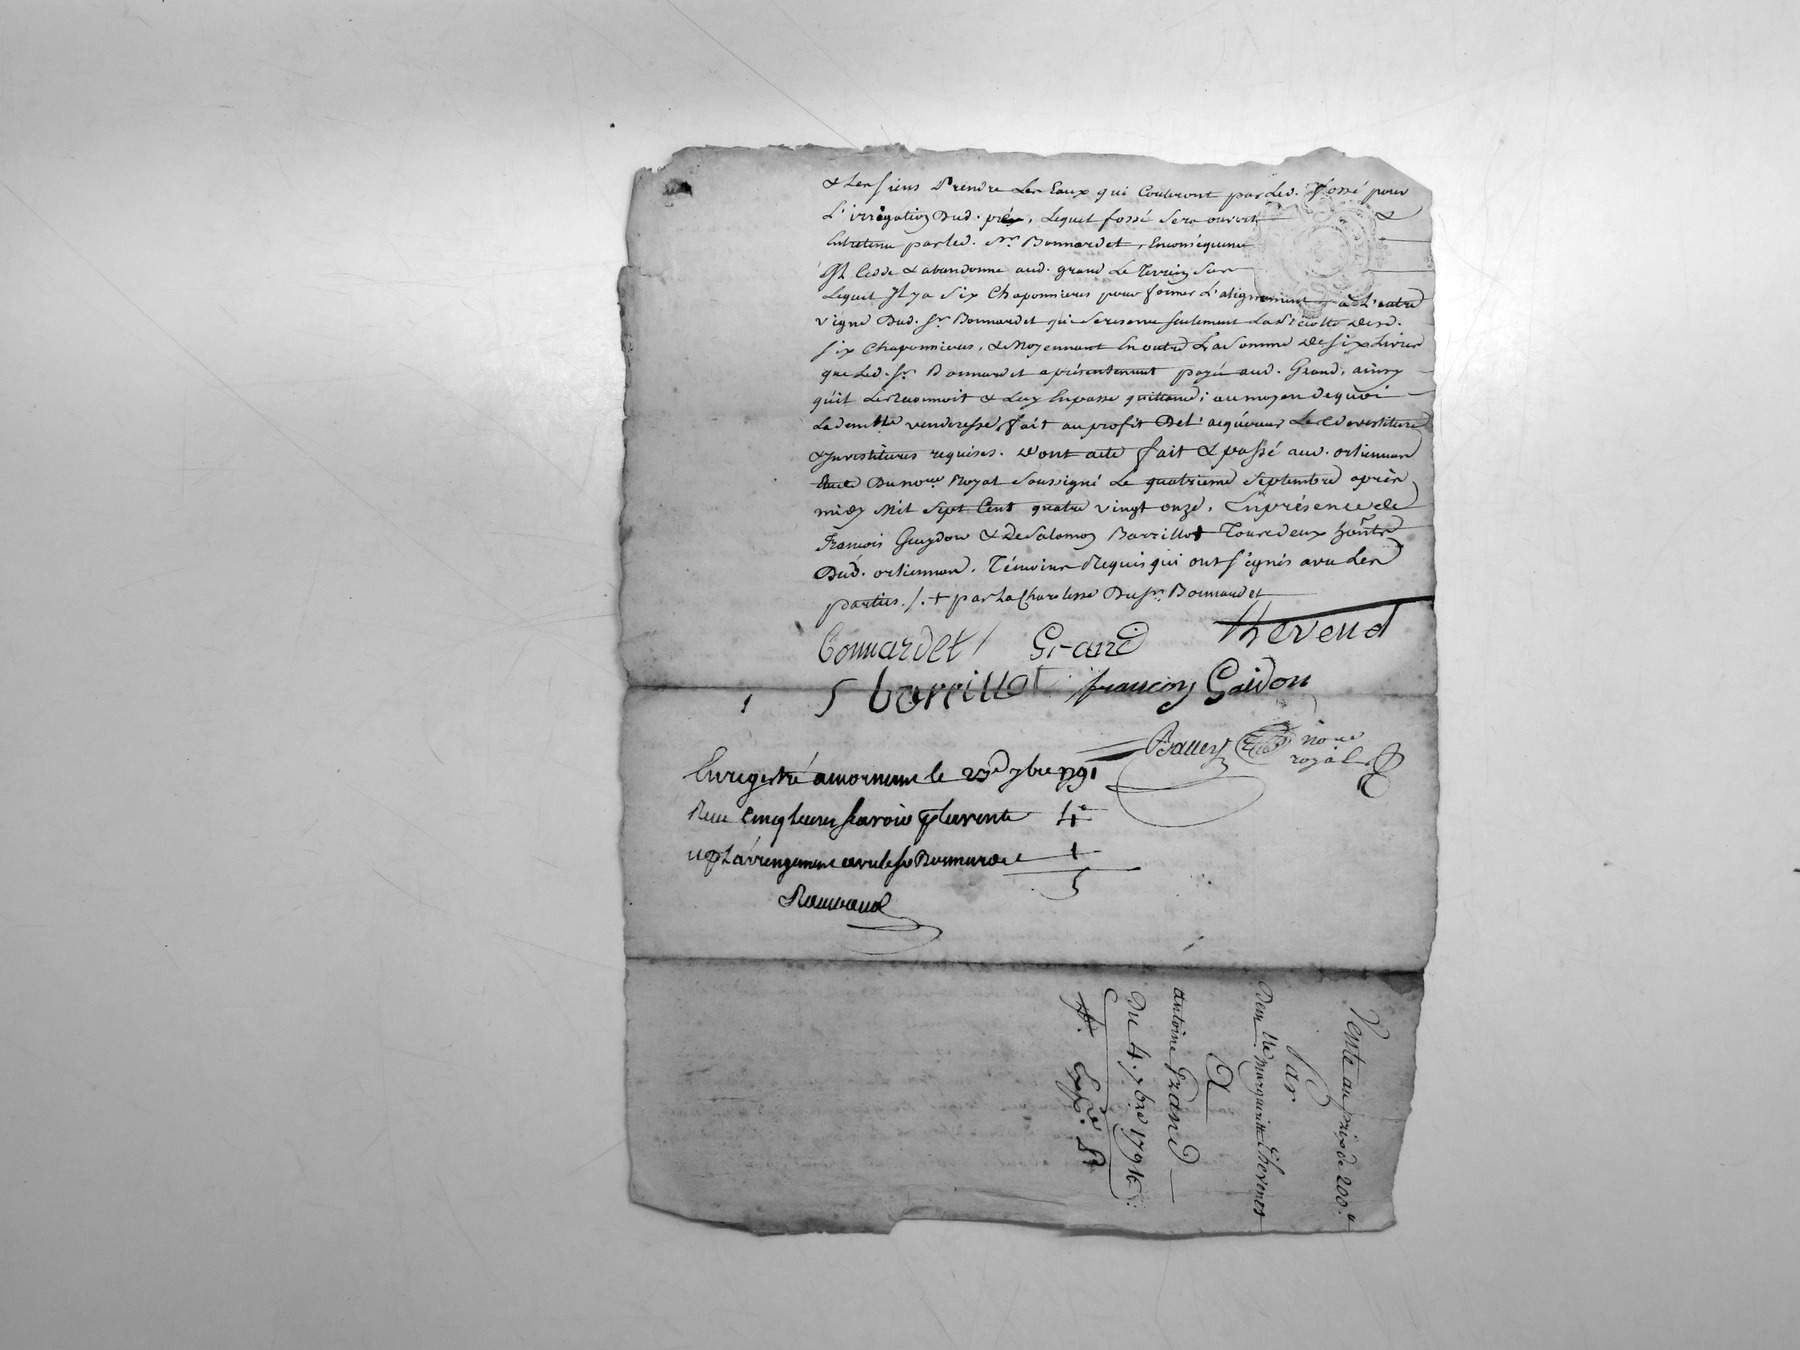 & les siens Prendre les Eaux qui Couleront par led. fossé pour
L'irrigation Dud. pré, lequel fossé sera ouvert &
Entretenu par led. Sr. Bonnardet, Enconséquence
Il Cedde & abandonne aud. grand Le Terrein Sur
Lequel Il y a Six Chaponnieres pour former L'alignement à L'autre
vigne Dud. Sr. Bonnardet qui se reserve seulement La Récolte desd.
six Chaponnieres, & Moyennant En outre La Somme de six Livres
que Led. Sr. Bonnardet a présentement payé aud. Grand, ainsy
qu'il Le Reconnoit & Luy En passe quittance; au moyen de quoi
La demlle venderesse, fait au profit De L'acquereur Les Devestitures
& Investitures requises. Dont acte fait & passé aud. orlienna
Etude Du nore. Royal Soussigné Le quatrieme Septembre après
midy Mil Sept Cent quatre vingt onze, En présence de
François Guydon & De Salomon Barrillot Tous deux
Dud. orlienna, Témoins Requis qui ont signés avec Les
parties./. + par La Dusr. Bonnardet
Bonnardet Grand thevenet
S barrillot françois Gaidon
nore
royal
Enregistré a mornant le 7bre 1791
Reçu Cinq livres savoir pr la vente 4
et pr L'arrengement avec le sr Bonnardet 1
5
Vente au prix de 200.
Par
Demlle. Marguerite Thevenet
A
antoine Grand
Du 4. 7bre 1791